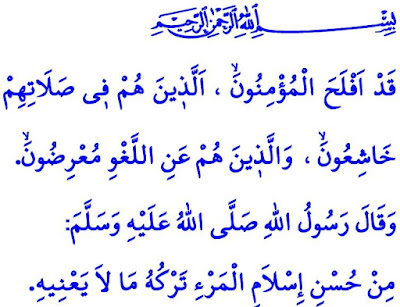 بِسْمِ اللهِ الرَّحْمٰنِ الرَّحِيمِ
قَدْ اَفْلَحَ الْمُؤْمِنُونَۙ ، اَلَّذ۪ينَ هُمْ ف۪ى صَلَاتِهِمْ
خَاشِعُونَۙ ، وَالَّذ۪ينَ هُمْ عَنِ اللَّغْوِ مُعْرِضُونَۙ.
وَقَالَ رَسُولُ اللهِ صَلَّى اللهُ عَلَيْهِ وَسَلَّمَ:
مِنْ حُسْنِ إِسْلَامِ الْمَرْءِ تَرْكُهُ مَا لاَ يَعْنِيهِ.